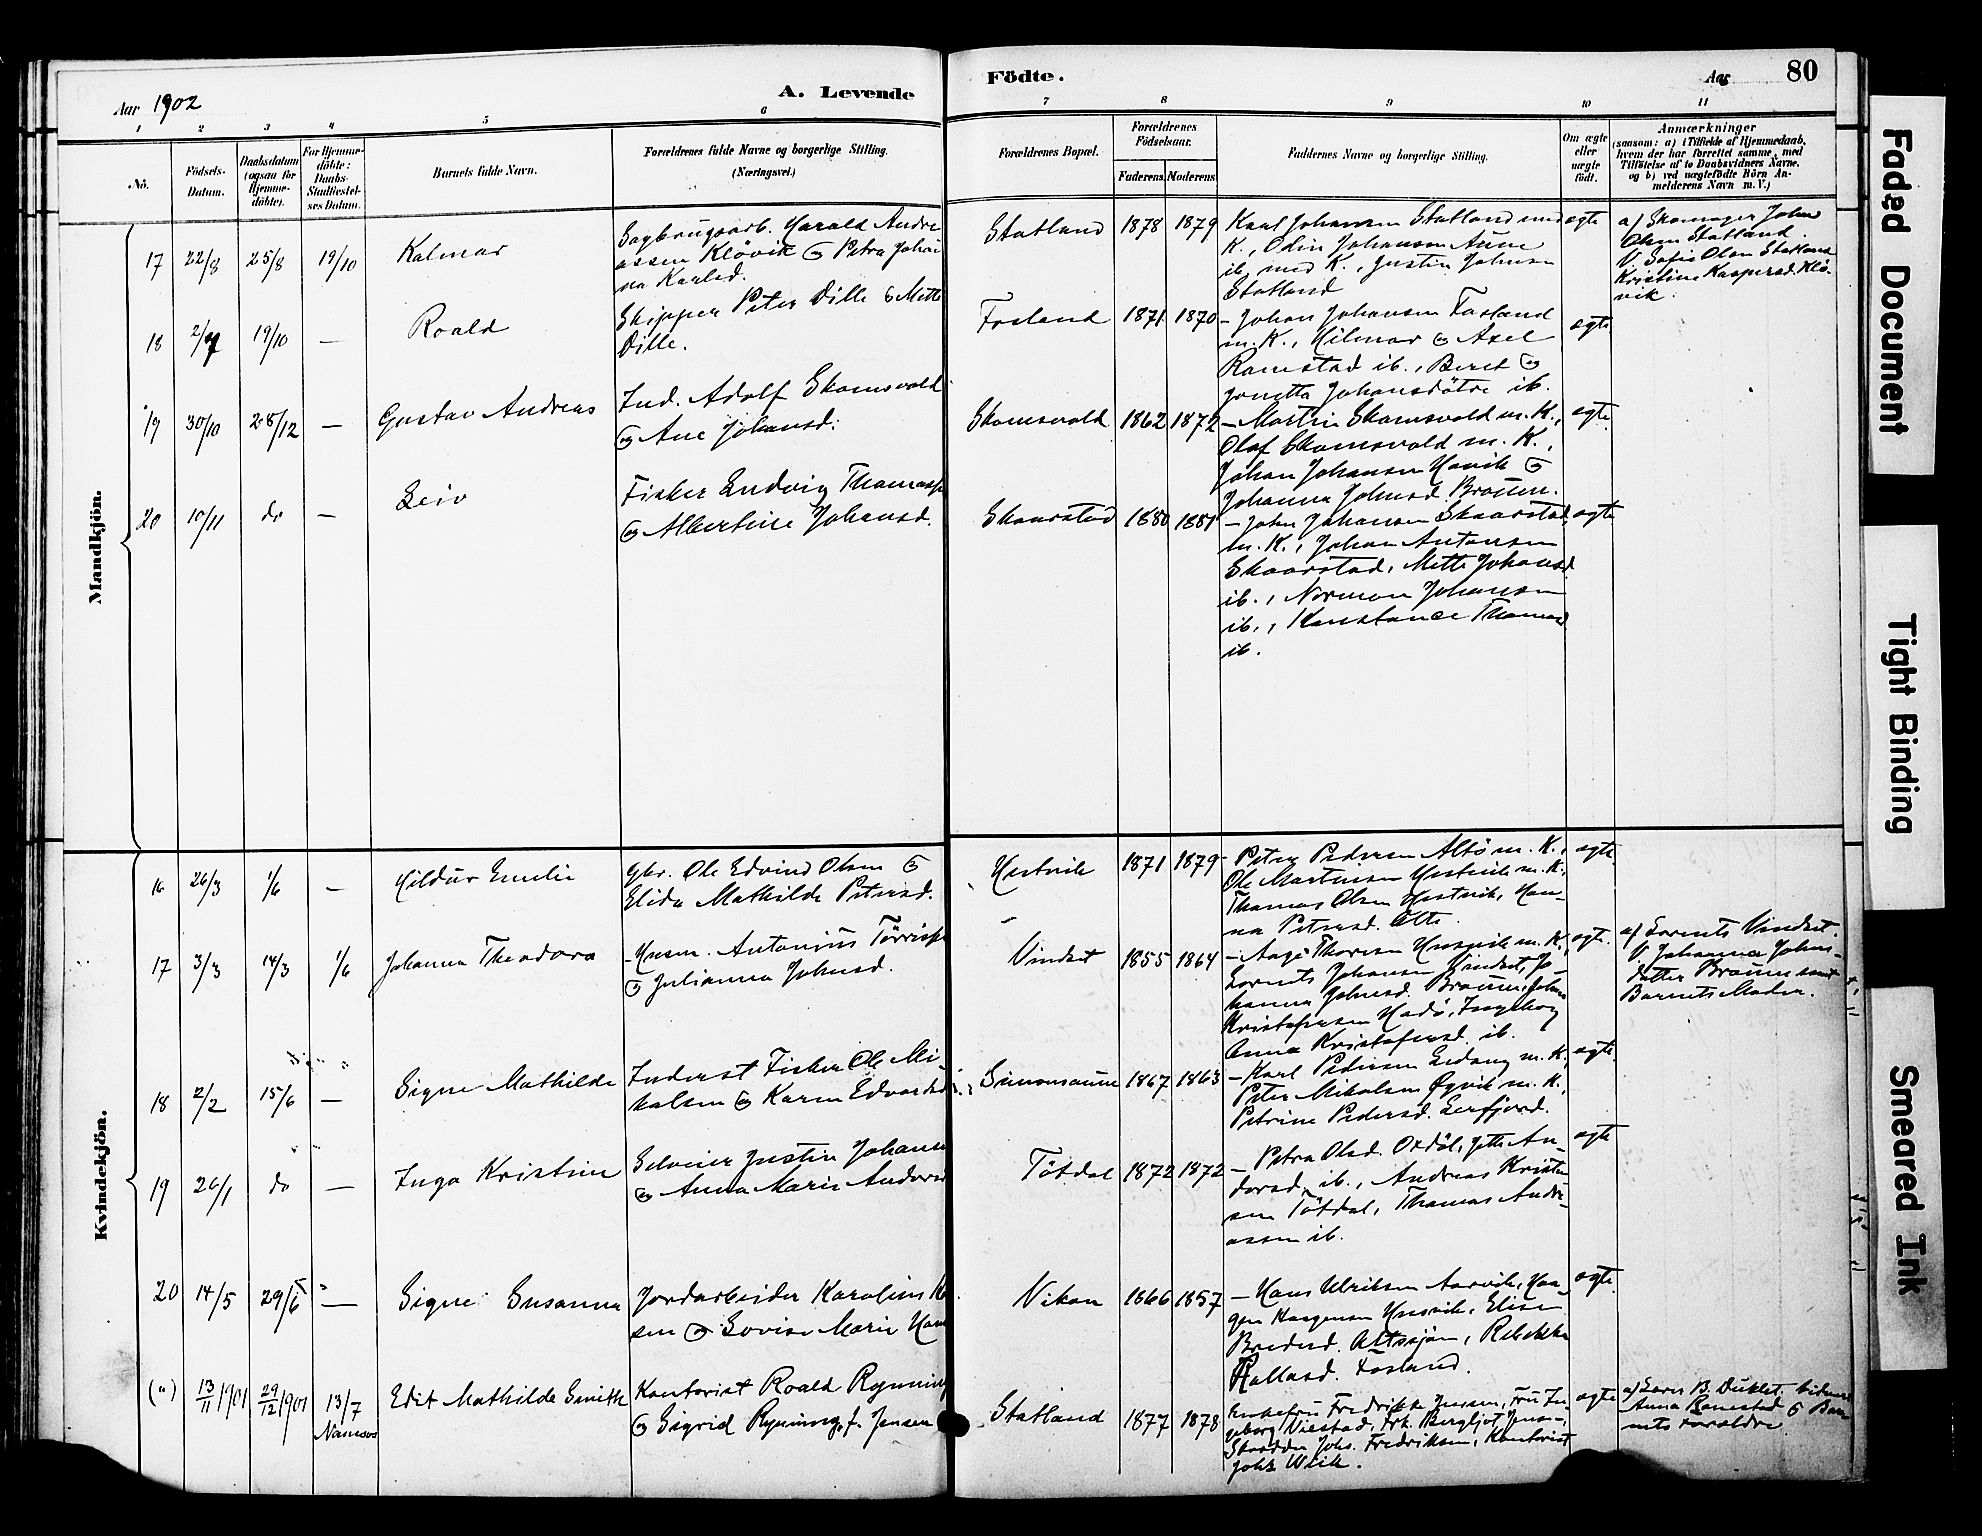 Aar 1902
A. Levende
Födte.
Aar
80
1 2 3 4 5 6 7 8 9 10 11
No.
Födsels-
Datum.
Daabsdatum
(ogsaa for
Hjemme-
döbte).
For Hjemme-
döbte:
Daabs-
Stadfæstel-
ses Datum.
Barnets fulde Navn.
Forældrenes fulde Navne og borgerlige Stilling.
(Næringsvei.)
Forældrenes Bopæl.
Forældrenes
Födselsaar.
Faderens. Moderens.
Faddernes Navne og borgerlige Stilling.
Om ægte
eller
uægte
født.
Anmærkninger
(saasom: a) i Tilfælde af Hjemmedaab,
hvem der har forrettet samme, med
Tilföielse af to Daabsvidners Navne,
og b) ved uægtefödte Börn An-
melderens Navn m. V.)
Mandkjön.
17 22/8 25/8 19/10 Kalmar
Sagbrugsarb. Harald Andre
assen Kløvik og Petra Johan
na Karlsd.
Statland 1878 1879
Karl Johansen Statland med
K., Odin Johansen Aune
ib. med K., Justin Johnsen
Statland
ægte
a/ Skomager Johan
Olsen Statland
V. Sofie Olsen Statland
Kristine Kaspersd. Klø-
vik.
18 19/10 — Roald
Skipper Peter Dille & Mette
Dille.
Fosland 1871 1870
— Johan Johansen Fosland
m. K., Hilmar og Axel
Ramstad ib., Beret og
Jonetta Johansdøtre ib.
ægte
19 30/10 28/12 — Gustav Andreas
Ind. Adolf Skomsvold
og Ane Johansd.
Skomsvold 1862 1872
— Martin Skomsvold m. K.,
Olaf Skomsvold m. K.,
Johan Johansen Havik og
Johanna Johnsd. Braüen.
ægte
20 10/11 do — Leiv
Fisker Ludvig Thomass
og Albertine Johansd.
Skaarstad 1880 1881
— John Johansen Skaarstad
m. K., Johan Antonsen
Skaarstad, Mette Johansd.
ib., Norman Johansen
ib., Konstance Thomasd
ib.
ægte
Kvindekjön.
16 26/3 1/6 — Hildur Emelie
Gbr. Ole Edvind Olsen og
Elida Mathilde Petersd.
Hestvik 1871 1879
— Peter Pedersen Altø m. K.,
Ole Martinsen Hestvik m. K.
Thomas Olsen Hestvik, Han-
na Petersd. Altø.
ægte
17 3/3 14/3 1/6 Johanna Theodora
Husm. Antonius Tørriss
og Julianna Johnsd.
Vindset 1855 1864
— Aage Thoresen Husvik m. K.,
Lorents Johansen Vindset, Jo-
hanna Johnsd. Braüen, Johan
Kristofersen Hadø, Ingeborg
Anna Kristofersd. ib.
ægte.
a/ Lorents Vindset.
V. Johanna Johns-
datter Braüen samt
Barnets Moder.
18 2/2 15/6 — Signe Mathilde
Inderst Fisker Ole Mi-
kalsen og Karen Edvardsd.
Simonsaune 1867 1863
— Karl Pedersen Sedang m. K.,
Peter Mikalsen Øyvik m. K.,
Petrine Pedersd. Lerfjord.
ægte
19 26/1 do — Inga Kristine
Selveier Justin Johanse
og Anna Marie Andersd
Tøtdal 1872 1872
— Petra Olsd. Oxdøl, Jette An-
dersd. ib., Andreas Kristen
sen Tøtdal, Thomas Andre-
assen ib.
ægte
20 14/5 29/6 — Signe Susanna
Jordarbeider Karolius
sen og Lovise Marie Han
Vikan 1866 1857
— Hans Ulriksen Aarvik, Haa-
gen Haagensen Husvik, Elise
Bredesd. Altsjøen, Rebekka
Rallasd. Fosland.
ægte
(") 13/11 1901 29/12 1901 13/7 Namsos
Edit Mathilde Smith
Kontorist Roald Rynning
og Sigrid Rynning, f. Jensen
Statland 1877 1878
Enkefru Fredrikke Jensen, Fru In-
geborg Vilstad, Frk. Bergljot Jensen,
Skrædder Johs. Fredriksen, Kontorist
Johs Wiik.
ægte
a/ Lars B. Duklet. Vidner
Anna Ramstad & Bar-
nets Forældre
Faded Document
Tight Binding
Smeared Ink